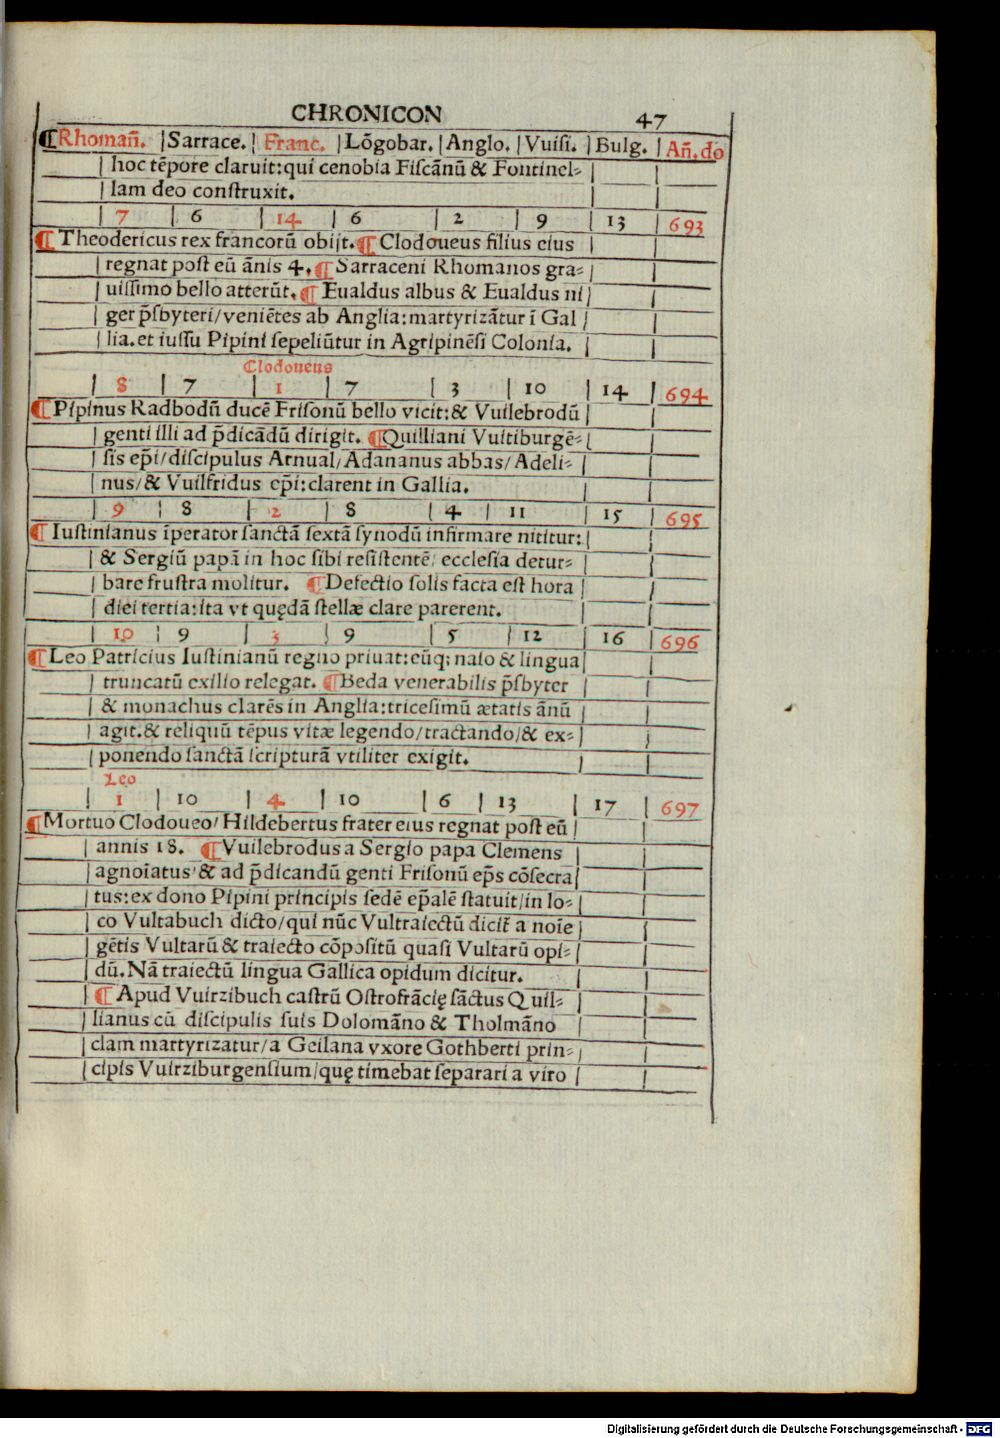 CHRONICON 47
¶Rhomañ. |Sarrace.| Franc. |Lōgobar.|Anglo.|Vuiſi.|Bulg.|Añ.do
hoc tēpore claruit:qui cenobia Fiſcānū & Fontinel-
lam deo conſtruxit.
7 | 6 | 14 | 6 | 2 | 9 | 13 | 693
¶Theodericus rex francorū obijt.¶Clodoueus filius eius
regnat poſt eū ānis 4.¶Sarraceni Rhomanos gra-
uiſſimo bello atterūt.¶Eualdus albus & Eualdus ni
ger p̄ſbyteri/veniētes ab Anglia:martyrizātur ī Gal
lia.et iuſſu Pipini ſepeliūtur in Agripinēſi Colonia.
Clodoueus
8 | 7 | 1 | 7 | 3 | 10 | 14 | 694
¶Pipinus Radbodū ducē Friſonū bello vicit:& Vuilebrodū
genti illi ad p̄dicādū dirigit. ¶Quilliani Vuitiburgē-
ſis ep̄i/diſcipulus Arnual/Adananus abbas/Adeli-
nus/& Vuilfridus ep̄i:clarent in Gallia.
9 | 8 | 2 | 8 | 4 | 11 | 15 | 695
¶Iuſtinianus īperator ſanctā ſextā ſynodū infirmare nititur:
& Sergiū papā in hoc ſibi reſiſtentē/ eccleſia detur-
bare fruſtra molitur. ¶Defectio ſolis facta eſt hora
diei tertia:ita vt quędā ſtellæ clare parerent.
10 | 9 | 3 | 9 | 5 | 12 | 16 | 696
¶Leo Patricius Iuſtinianū regno priuat:eūq; naſo & lingua
truncatū exilio relegat. ¶Beda venerabilis p̄ſbyter
& monachus clarēs in Anglia:triceſimū ætatis ānū
agit.& reliquū tēpus vitæ legendo/tractando/& ex-
ponendo ſanctā ſcripturā vtiliter exigit.
Leo
1 | 10 | 4 | 10 | 6 | 13 | 17 | 697
¶Mortuo Clodoueo/Hildebertus frater eius regnat poſt eū
annis 18. ¶Vuilebrodus a Sergio papa Clemens
agnoīatus/& ad p̄dicandū genti Friſonū ep̄s cōſecra
tus:ex dono Pipini principis ſedē ep̄alē ſtatuit/in lo-
co Vultabuch dicto/qui nūc Vultraiectū dicit̄ a noīe
gētis Vultarū & traiecto cōpoſitū quaſi Vultarū opi-
dū.Nā traiectū lingua Gallica opidum dicitur.
¶Apud Vuirzibuch caſtrū Oſtrofrācię ſāctus Quil-
lianus cū diſcipulis ſuis Dolomāno & Tholmāno
clam martyrizatur/a Geilana vxore Gothberti prin-
cipis Vuirziburgenſium/quę timebat ſeparari a viro
Digitalisierung gefördert durch die Deutsche Forschungsgemeinschaft - DFG